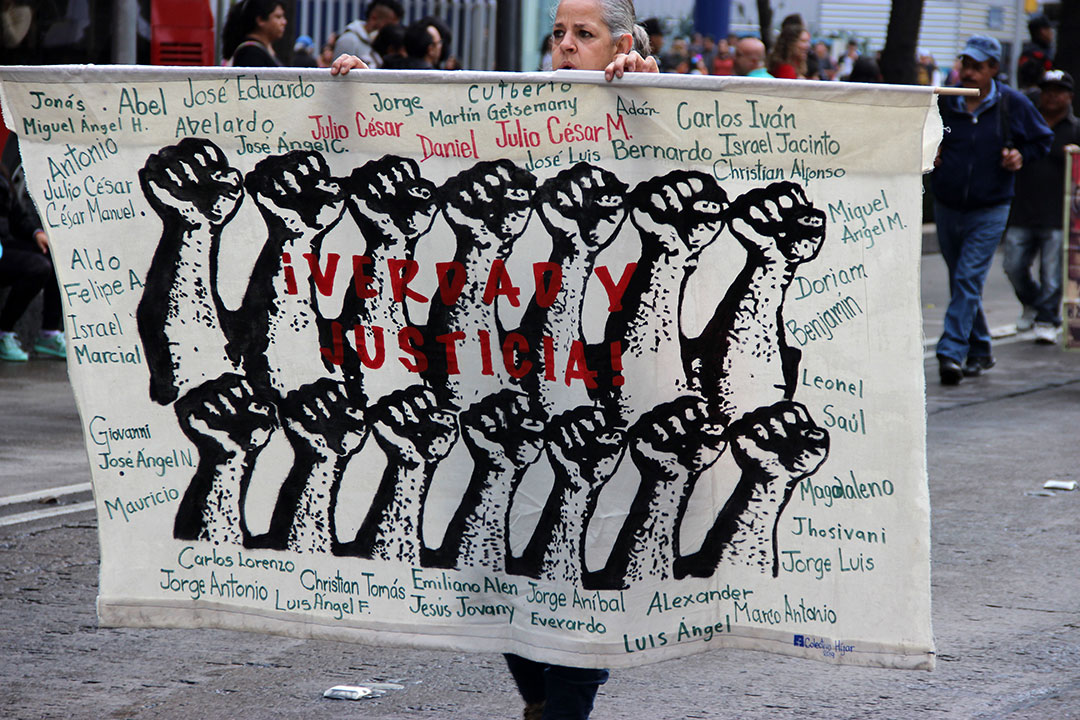 Jonás
Abel
José Eduardo
Jorge
Cutberto
Martín Getsemany
Adán
Carlos Iván
Miguel Ángel H.
Abelardo
José Ángel C.
Julio César
Daniel
Julio César M.
José Luis
Bernardo
Israel Jacinto
Christian Alfonso
Antonio
Julio César
César Manuel.
Miguel
Ángel M.
Aldo
Felipe A.
Doriam
Benjamín
¡VERDAD Y
JUSTICIA!
Israel
Marcial
Leonel
Saúl
Giovanni
José Ángel N.
Mauricio
Magdaleno
Jhosivani
Jorge Luis
Carlos Lorenzo
Jorge Antonio
Christian Tomás
Luis Ángel F.
Emiliano Alen
Jesus Jovany
Jorge Aníbal
Everardo
Alexander
Luis Ángel
Marco Antonio
2019